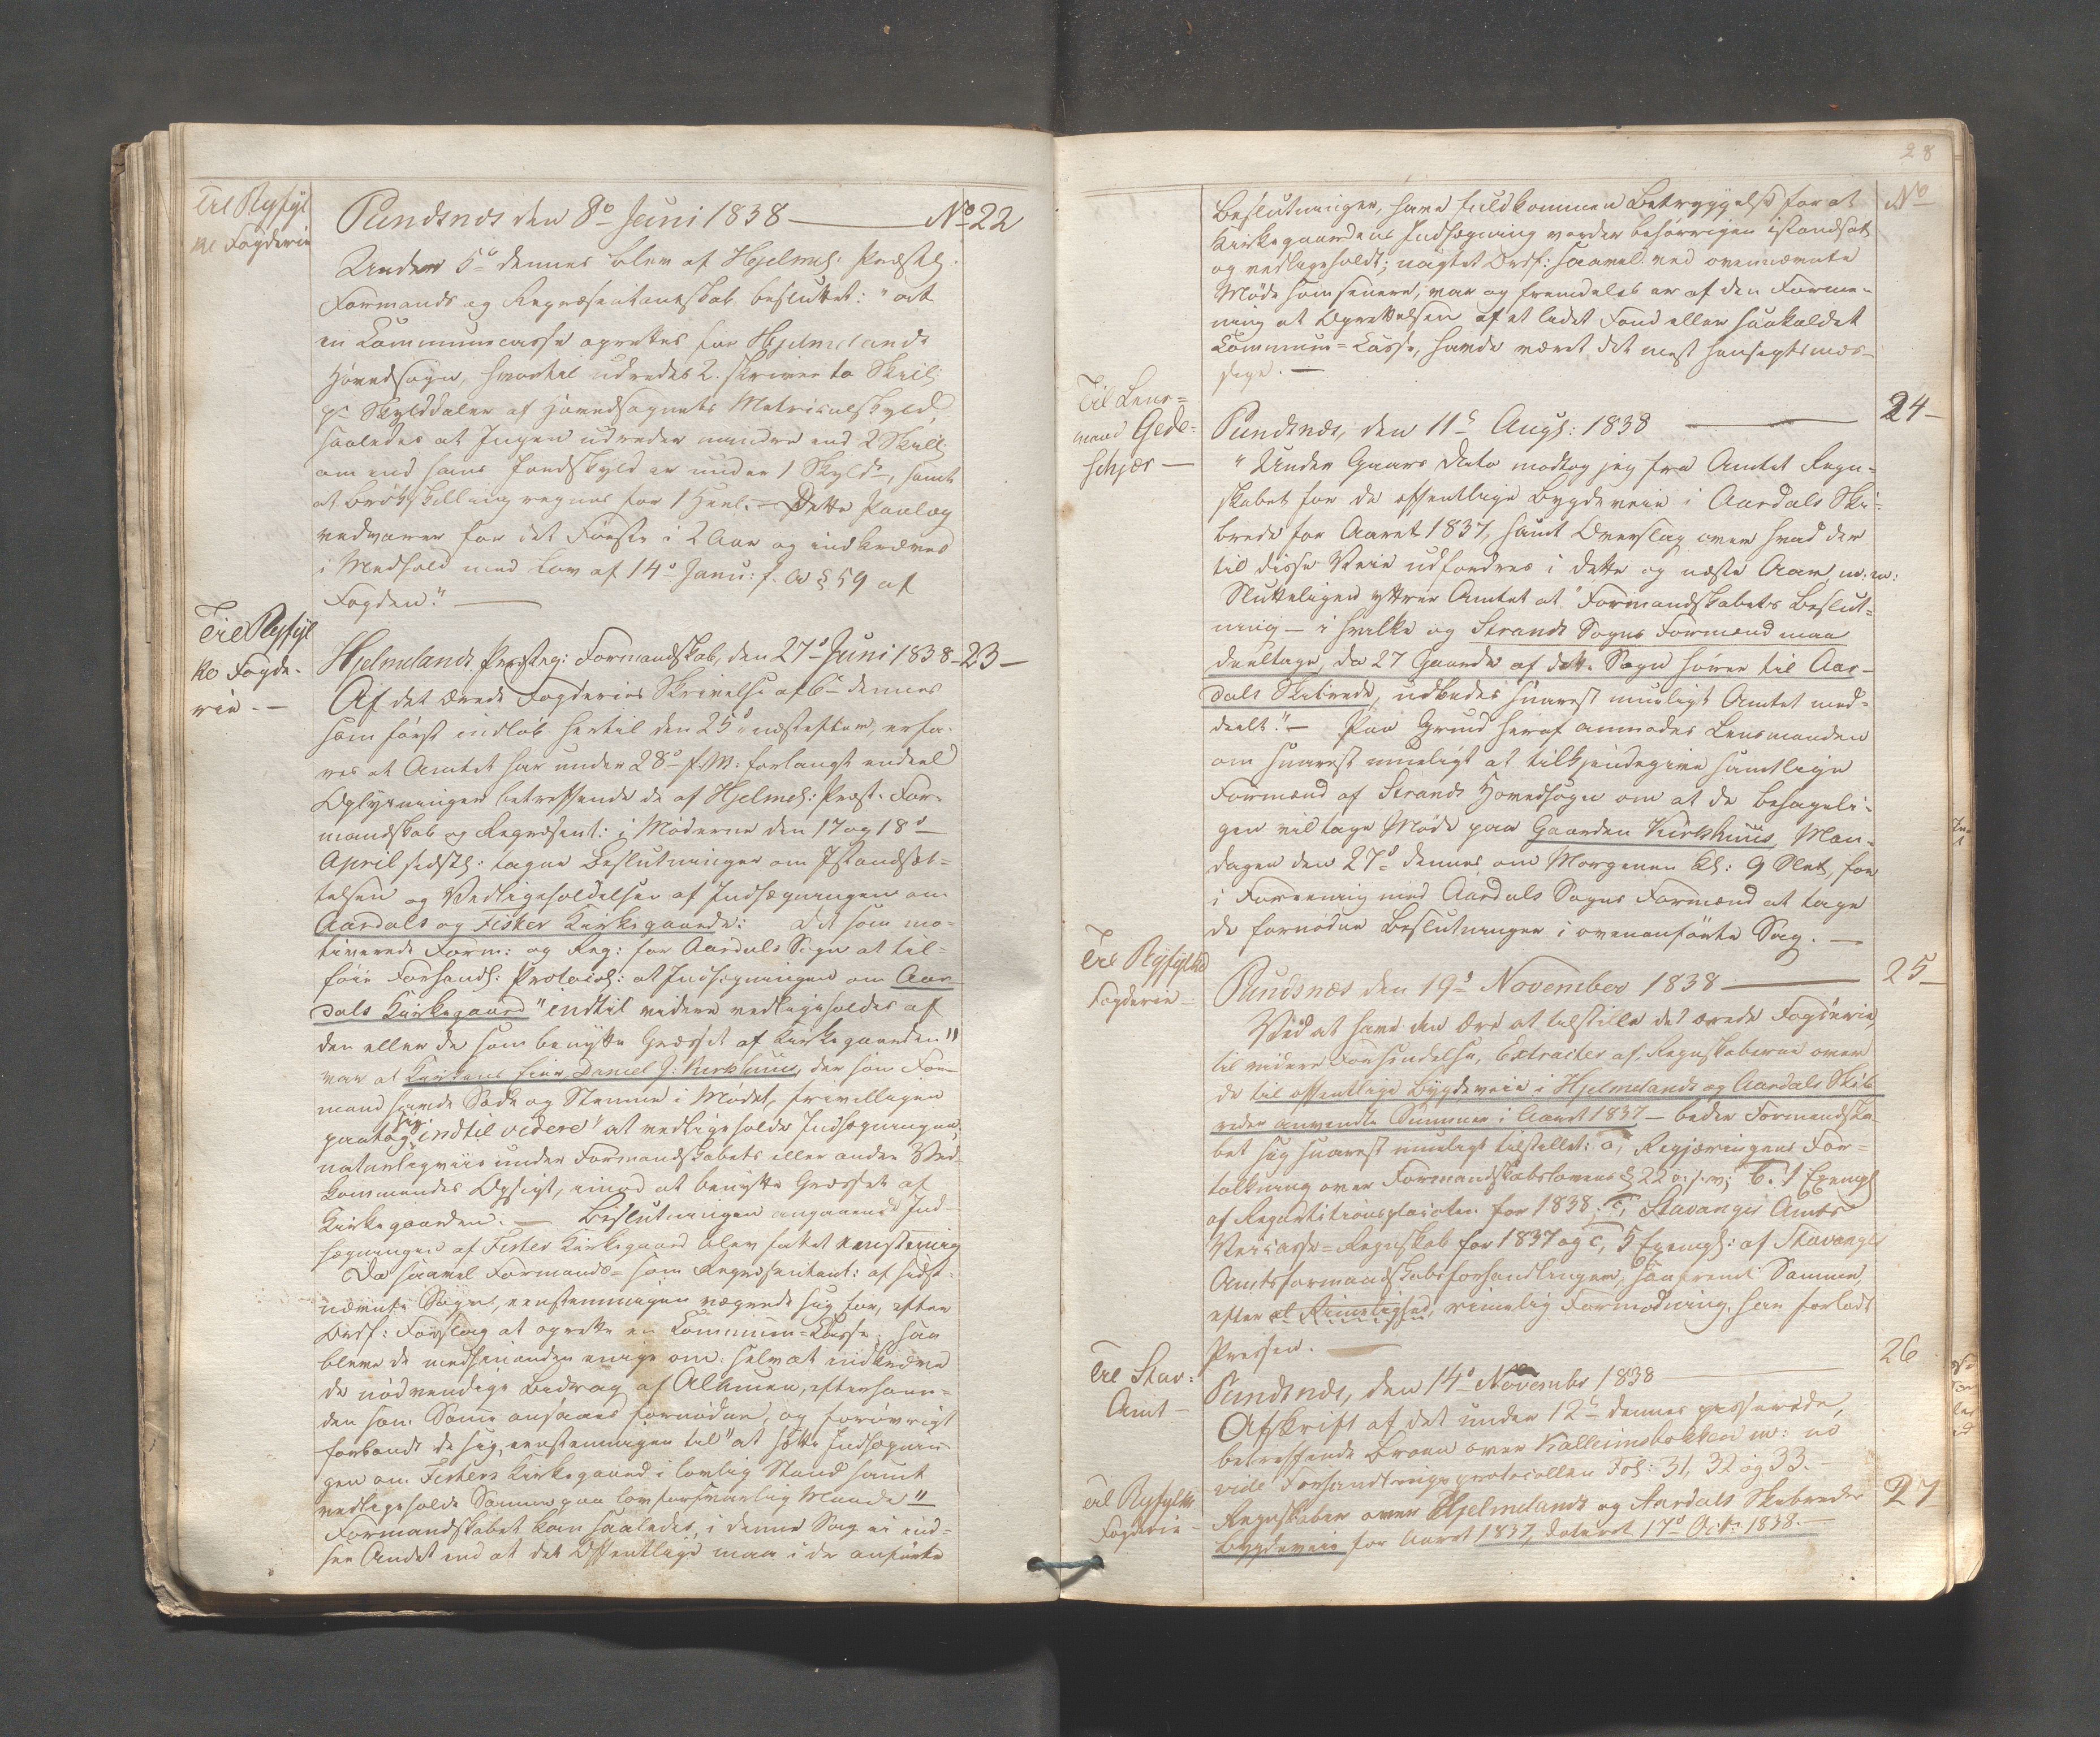 Til Ryfyl
ke Fogderie
Pundsnæs den 8de Juni 1838 — No 22
Under 5te dennes blev af Hjelmel: Præsteg.
Formands og Repræsentantskab besluttet: "at
en Communecasse oprettes for Hjelmelands
Hovedsogn, hvortil udredes 2. skriver to Skill:
pr Skylddaler af Hovedsognets Matriculskyld,
saaledes at Ingen udreder mindre end 2 Skill:
om end hans Jordskyld er under 1 Skyldr, samt
at Brøkskilling regnes for 1 Heel. — Dette Paalæg
vedvarer for det Første i 2 Aar og indkræves
i Medhold med Lov af 14de Janu: f. A § 59 af
Fogden." —
Til Ryfyl
ke Fogde-
rie. —
Hjelmelands Præsteg: Formandskab, den 27de Juni 1838 — 23 —
Af det ærede Fogderies Skrivelse af 6te dennes
som først indløb hertil den 25de næstefter, erfa-
res at Amtet har under 28de f. M: forlangt endeel
Oplysninger betreffende de af Hjelmel: Præst. For-
mandskab og Repræsent: i Møderne den 17 og 18de
April sidstl: tagne Beslutninger om Istandsæt-
telsen og Vedligeholdelsen af Indhegningen om
Aardals og Fister Kirkegaarde: Det som mo-
tiverede Form: og Rep: for Aardals Sogn at til-
føie Forhandl: Protocol: at Indhegningen om Aar-
dals Kirkegaard "indtil videre vedligeholdes af
den eller de som benytte Græsset af Kirkegaarden"
var at Kirkens Eier Daniel J: Kirkhuus, der som For-
mand havde Sæde og Stemme i Mødet, frivilligen
paatog sig "indtil videre" at vedligeholde Indhegningen,
naturligviis under Formandskabets eller anden Ved-
kommendes Opsigt, imod at benytte Græsset af
Kirkegaarden. — Beslutningen angaaende Ind-
hegningen af Fister Kirkegaard blev fattet eenstemmig
Da saavel Formands- som Repræsentant: af sidst-
nævnte Sogn, eenstemmigen vægrede sig for, efter
Ordf: Forslag at oprette en Commune-Casse; saa
bleve de medhinanden enige om: selv at indkræve
de nødvendige Bidrag af Almuen, eftersom-
den som Samme ansaaes fornøden, og forøvrigt
forbandt de sig, eenstemmigen til "at sætte Indhegnin-
gen om Fisters Kirkegaard i lovlig Stand samt
vedligeholde Samme paa lovforsvarlig Maade"
Formandskabet kan saaledes, i denne Sag ei ind-
see Andet end at det Offentlige maa i de anførte
28
No
Beslutninger, have fuldkommen Betryggelse for at
Kirkegaardens Indhegning vorder behørigen istandsat
og vedligeholdt; uagtet Ordf: saavel ved ovennævnte
Møde som senere, var og fremdeles er af den Forme-
ning at Oprettelsen af et lidet Fond eller saakaldet
Commune-Casse, havde været det mest hensigtsmæs-
sige. —
Til Lens-
mand Gede-
schjær —
Pundsnæs, den 11te Augs: 1838 — 24 —
"Under Gaars Dato modtog jeg fra Amtet Regn-
skabet for de offentlige Bygdeveie i Aardals Ski-
brede for Aaret 1837, samt Overslag over hvad der
til disse Veie udfordres i dette og næste Aar m: m:
Sluttelig yttrer Amtet at "Formandskabets Beslut-
ning — i hvilke og Strands Sogns Formænd maa
deeltage, da 27 Gaarde af dette Sogn hører til Aar-
dals Skibrede, udbedes snarest mueligt Amtet med-
deelt." — Paa Grund heraf anmodes Lensmanden
om snarest mueligt at tilkjendegive samtlige
Formænd af Strands Hovedsogn om at de behageli-
gen vil tage Møde paa Gaarden Kirkhuus, Man-
dagen den 27de dennes om Morgenen Kl: 9 Slet, for
i Forening med Aardals Sogns Formænd at tage
de fornødne Beslutninger i ovenanførte Sag. —
Til Ryfylke
Fogderie —
Pundsnæs den 19de November 1838 — 25 —
Ved at have den Ære at tilstille det ærede Fogderie,
til videre Forsendelse, Extracter af Regnskaberne over
de til offentlige Bygdeveie i Hjelmelands og Aardals Skib
reder anvendte Summer i Aaret 1837 — beder Formandska
bet sig snarest mueligt tilstillet: a, Regjeringens For-
tolkning over Formandskabslovens § 22 o: s: v; b. 1 Exempl
af Repartitionsplacaten for 1838; c, Stavanger Amts
Veicasse-Regnskab for 1837 og c, 5 Exempl: af Stavanger
Amtsformandskabsforhandlinger, saafremt Samme,
efter al Rimelighed, rimelig Formodning, har forladt
Pressen. —
Til Stav:
Amt —
Pundsnæs, den 14de Novembr 1838 — 26
Afskrift af det under 12te dennes passerede,
betreffende Broen over Kalleimsbekken m: v
vide Forhandlingsprotocollen Fol: 31, 32 og 33. —
Til Ryfylke
Fogderie —
Regnskaber over Hjelmelands og Aardals Skibreders 27
Bygdeveie for Aaret 1837, dateret 17de Octbr 1838. —